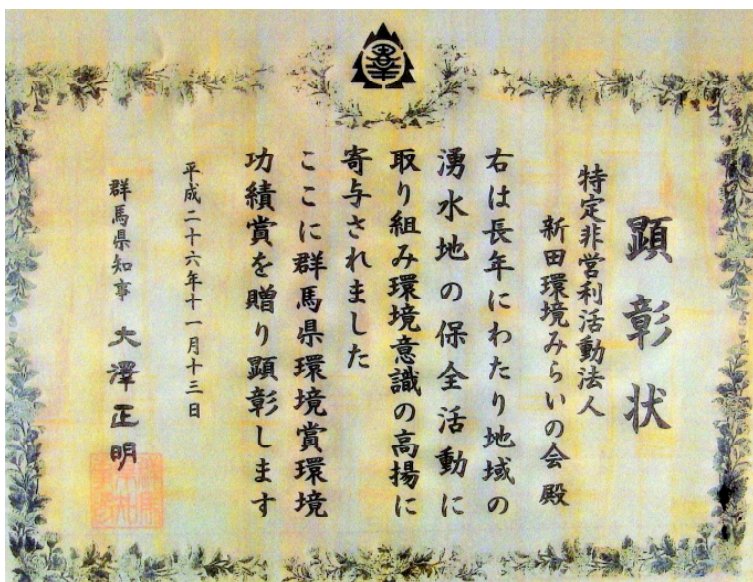 顕彰状
特定非営利活動法人
新田環境みらいの会 殿
右は長年にわたり地域の
湧水地の保全活動に
取り組み環境意識の高揚に
寄与されました
ここに群馬県環境賞環境
功績賞を贈り顕彰します
平成二十六年十一月十三日
群馬県知事 大澤正明